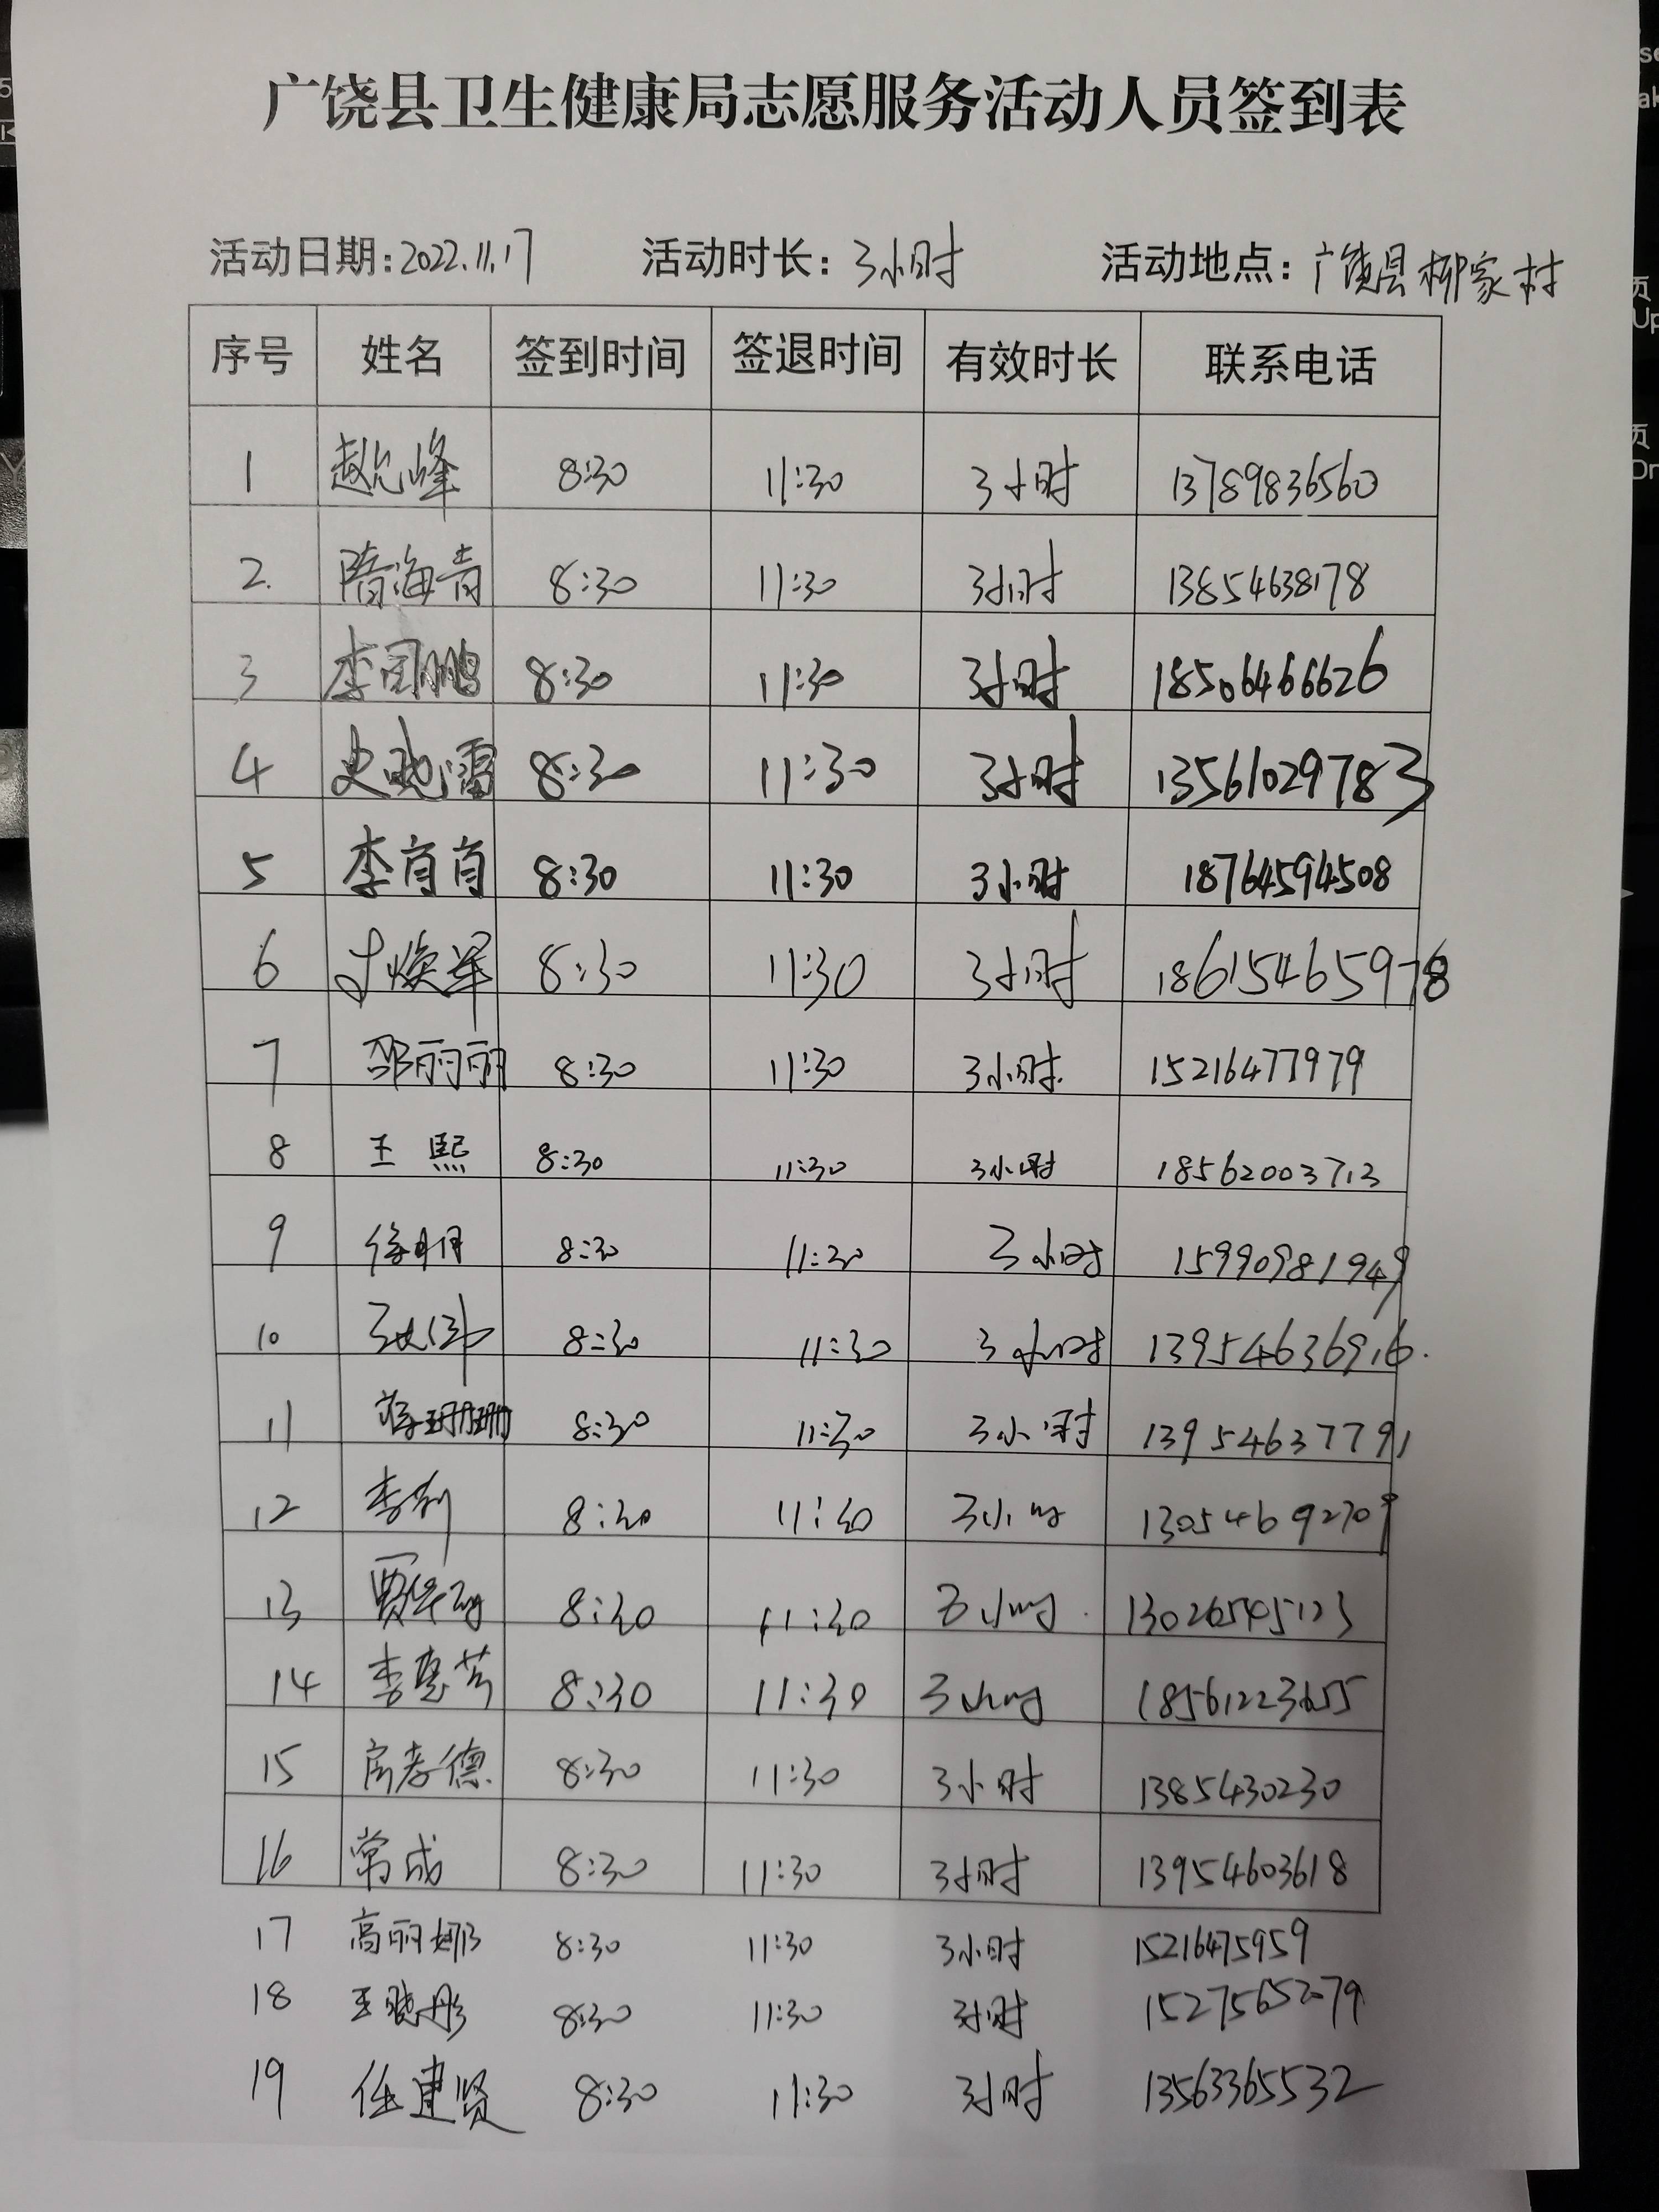 广饶县卫生健康局志愿服务活动人员签到表
活动日期:2022.11.17 活动时长:3小时 活动地点:广饶县柳家村
序号 姓名 签到时间 签退时间 有效时长 联系电话
1 赵允峰 8:30 11:30 3小时 13789836560
2. 隋海青 8:30 11:30 3小时 13854638178
3 李国鹏 8:30 11:30 3小时 18506466626
4 史晓雷 8:30 11:30 3小时 13561029783
5 李肖肖 8:30 11:30 3小时 18764594508
6 8:30 11:30 3小时 18615465978
7 邵丽丽 8:30 11:30 3小时. 15216477979
8 王熙 8:30 11:30 3小时 18562003713
9 徐明月 8:30 11:30 3小时 15990981949
10 8:30 11:30 3小时 13954636916.
11 蒋珊珊 8:30 11:30 3小时 13954637791
12 李刚 8:30 11:30 3小时 13054692709
13 8:30 11:30 3小时 13026545123
14 8:30 11:30 3小时 18561223655
15 房孝德 8:30 11:30 3小时 1385430230
16 常成 8:30 11:30 3小时 13954603618
17 高丽娜 8:30 11:30 3小时 15216475959
18 王晓彤 8:30 11:30 3小时 15275652279
19 任建贤 8:30 11:30 3小时 13563365532